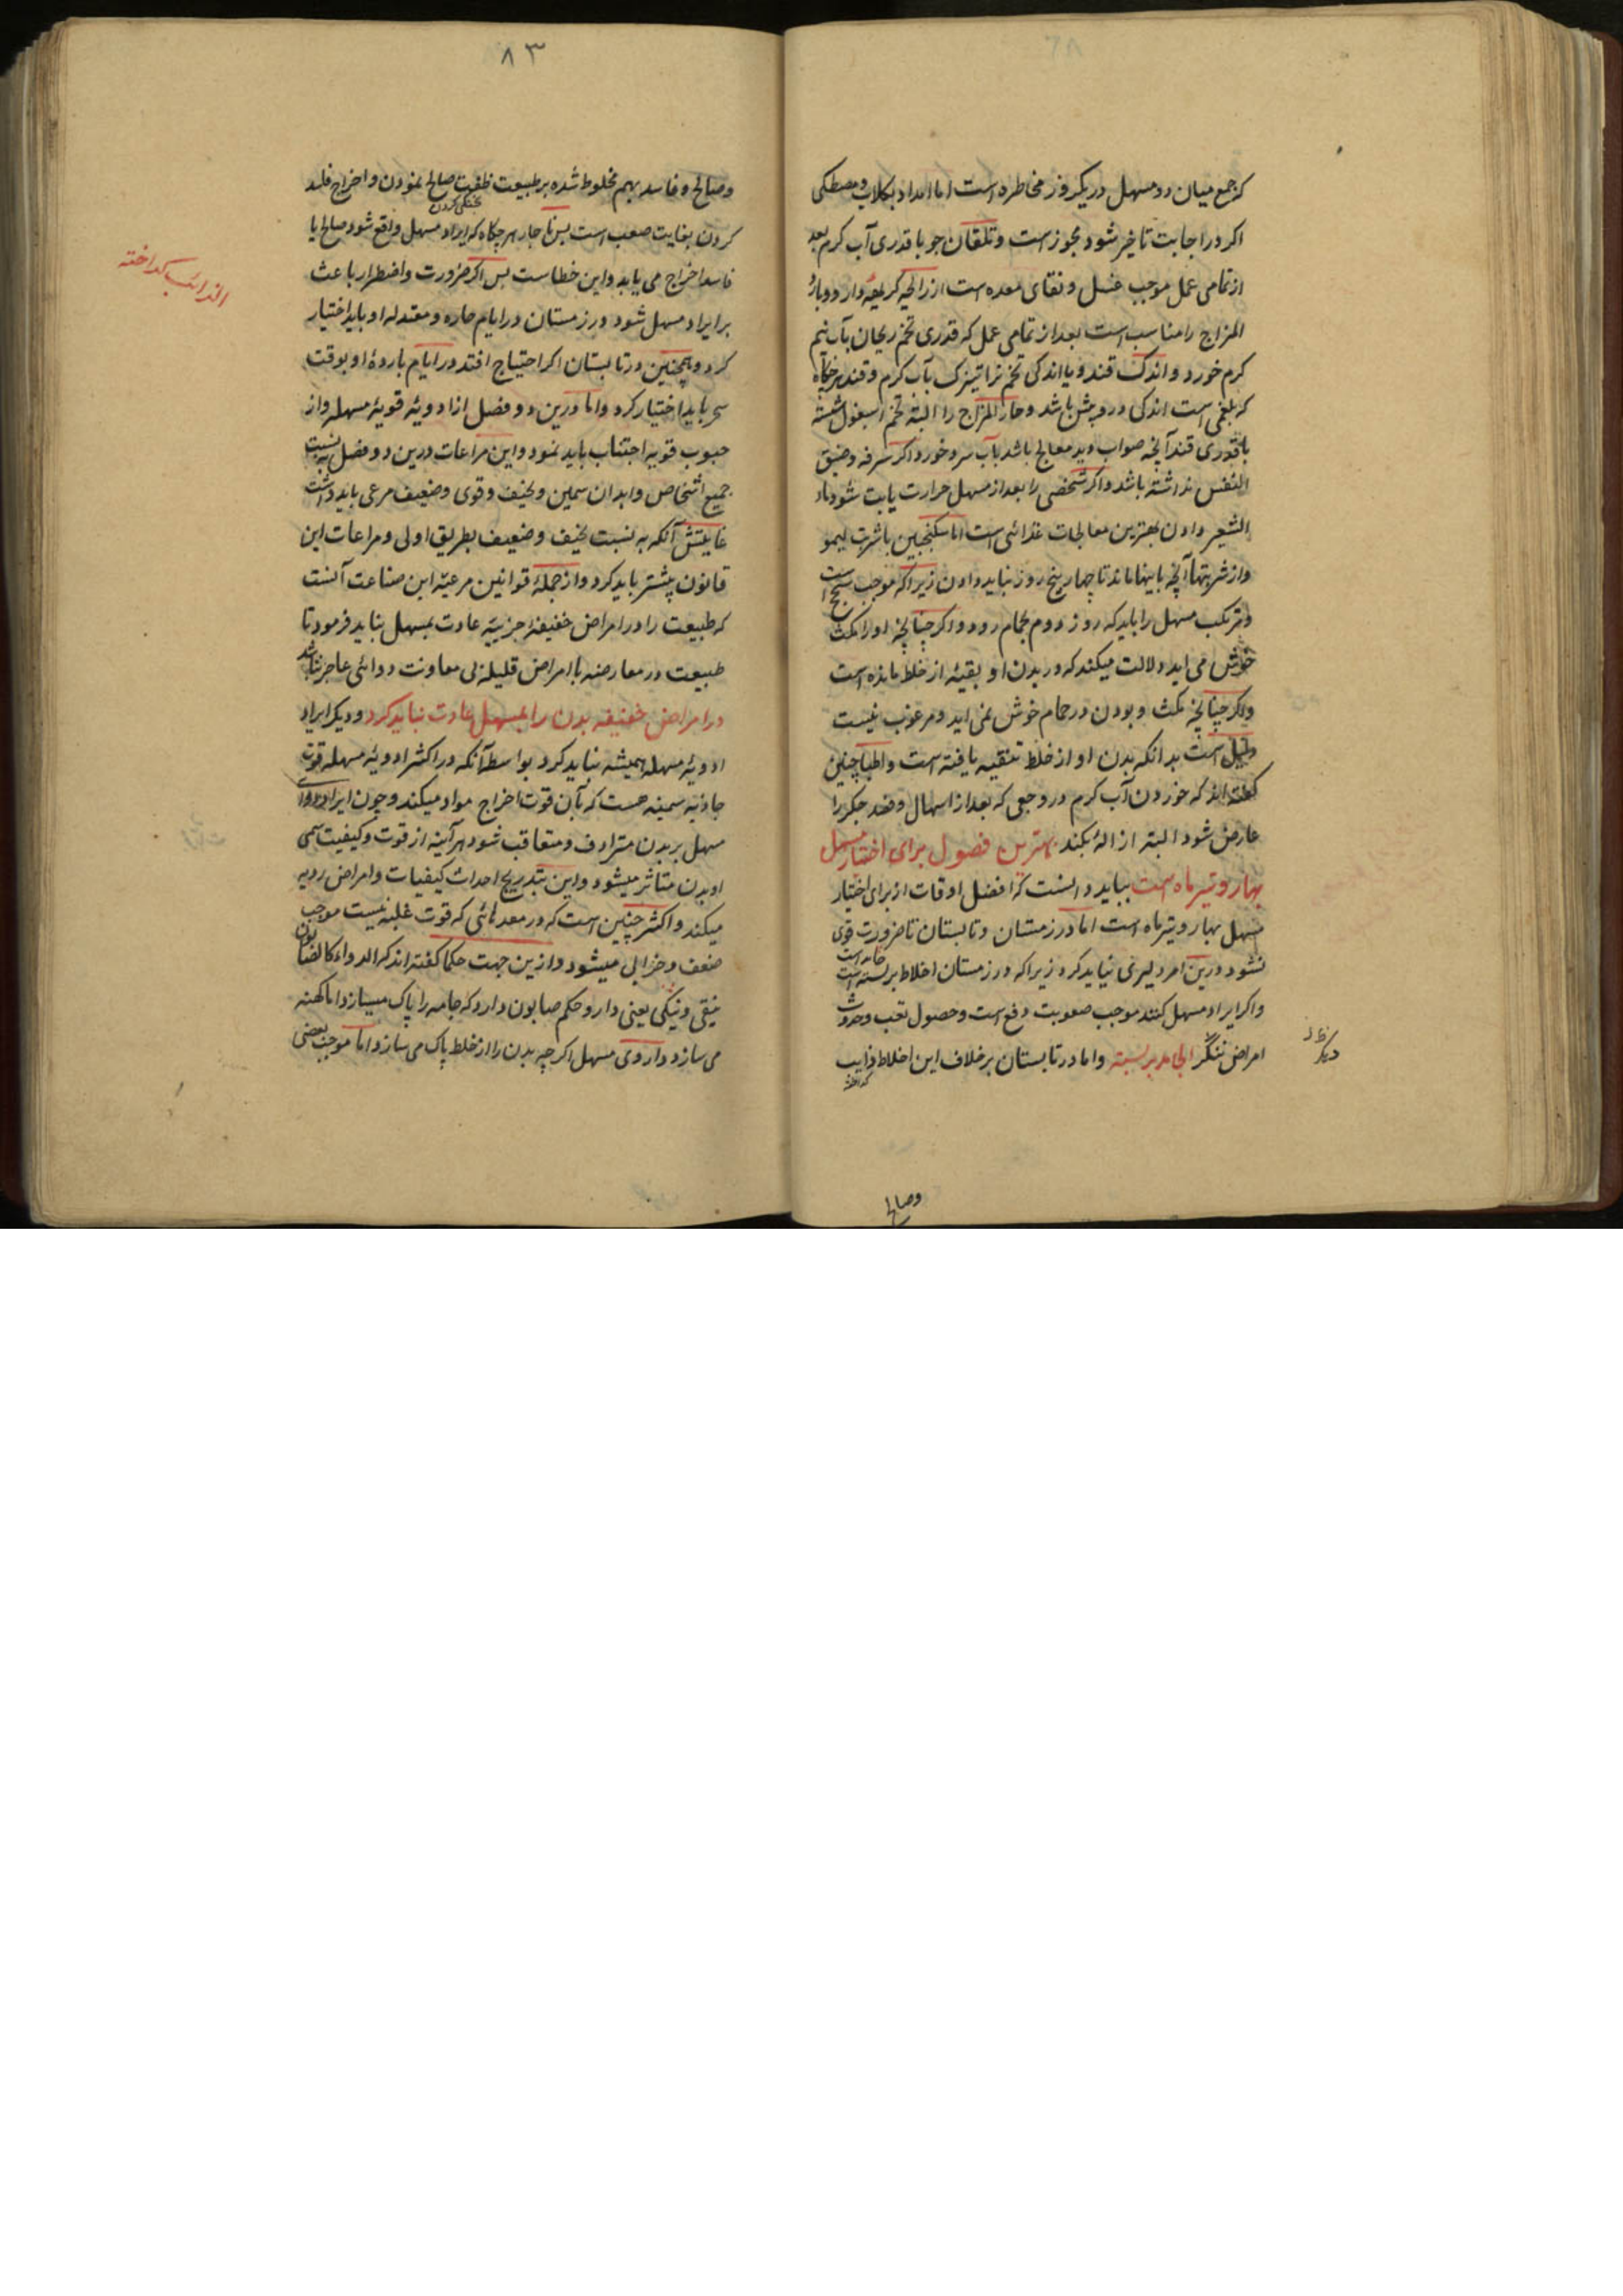 که جمع میان دو مسهل در یکروز مخاطره است اما امداد بکلاب و مصطکی
اکر در اجابت تاخیر شود مجوز است و تلقان جو با قدری آب کرم بعد
از تمامی عمل موجب غسل و نقای معده است از رایحه کریهه دارو و بارد
المزاج را مناسب است بعد از تمامی عمل که قدری تخم ریحان بآب نیم
کرم خورد و اندک قند و یا اندکی تخم تراتیزک بآب کرم و قند هرچکاه
که بلغمی است اندکی در وجش باشد و حار المزاج را البته تخم اسبغول شسته
با قدری قند آنچه صواب دید معالج باشد بآب سرد خورد اکر سرفه و ضیق
النفس نداشته باشد و اکر شخصی را بعد از مسهل حرارت یابت شود ماء
الشعیر دادن بهترین معالجات غذائی است اما سکنجبین با شربت لیمو
و از شربتها آنچه باینها ماند تا چهار پنج روز نباید دادن زیرا که موجب سحج است
و مرتکب مسهل را باید که روز دوم بحمام رود و اکر چنانچه او را مکث
خوش می اید دلالت میکند که در بدن او بقیهٔ از خلط مانده است
و اکر چنانچه مکث و بودن در حمام خوش نمی اید و مرغوب نیست
دلیل است بدانکه بدن او از خلط تنقیه یافته است و اطبا چنین
گفته اند که خوردن آب کرم در وجعی که بعد از اسهال و فصد جکر را
عارض شود البته ازاله بکند بهترین فصول برای اختیار مسهل
بهار و تیر ماه است بباید دانست که افضل اوقات از برای اختیار
مسهل بهار و تیر ماه است اما در زمستان و تابستان تا ضرورت قوی
نشود درین امر دلیری نباید کرد زیرا که در زمستان اخلاط بر بسته است
و اکر ایراد مسهل کنند موجب صعوبت دفع است و حصول تعب و حدوث
امراض الجامد بر بسته و اما در تابستان بر خلاف این اخلاط ذایب
کداخته
وصالح
۸۳
و صالح و فاسد بهم مخلوط شده بر طبیعت صالح نمودن و اخراج فاسد
کردن بغایت صعب است بس ناچار هرچکاه که ایراد مسهل واقع شود صالح یا
فاسد اخراج می یابد و این خطاست بس اکر ضرورت و اضطرار باعث
بر ایراد مسهل شود در زمستان در ایام حاره و معتدله او باید اختیار
کرد و همچنین در تابستان اکر احتیاج افتد در ایام بارده او بوقت
سحر باید اختیار کرد و اما درین دو فصل از ادویهٔ قویهٔ مسهله و از
حبوب قویه اجتناب باید نمود و این مراعات درین دو فصل به نسبت
جمیع اشخاص و ابدان سمین و نحیف و قوی و ضعیف مرعی باید داشت
غایتش آنکه به نسبت نحیف و ضعیف بطریق اولی و مراعات این
قانون پیشتر باید کرد و از جملهٔ قوانین مرعیه این صناعت آنست
که طبیعت را در امراض خفیفه جزییه عادت بمسهل نباید فرمود تا
طبیعت در معارضه با امراض قلیله بی معاونت دوائی عاجز نباشد
در امراض خفیفه بدن را بمسهل عادت نباید کرد و دیکر ایراد
ادویهٔ مسهله همیشه نباید کرد بواسطه آنکه در اکثر ادویهٔ مسهله قوت
جاذبه سمیه هست که بآن قوت اخراج مواد میکند و چون ایراد دوای
مسهل بر بدن مترادف و متعاقب شود هر آینه از قوت و کیفیت سمی
او بدن متاثر میشود و این بتدریج احداث کیفیات و امراض ردیه
میکند و اکثر چنین است که در معدهائی که قوت غلبه نیست موجب
ضعف و خرابی میشود و ازین جهت حکما کفته اند که الدواء کالصابون
ینقی و ینکی یعنی دارو حکم صابون دارد که جامه را پاک میسازد اما کهنه
می سازد و داروی مسهل اکر چه بدن را از خلط پاک می سازد اما موجب بعضی
الذائب کداخته